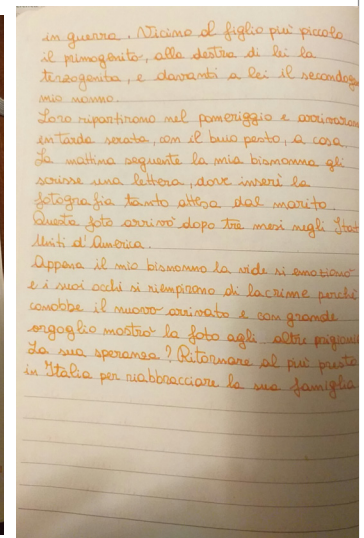 in guerra. Vicino al figlio più piccolo
il primogenito, alla destra di lei la
terzogenita, e davanti a lei il secondog
mio nonno.
Loro ripartirono nel pomeriggio e arrivaron
in tarda serata, con il buio pesto, a casa.
La mattina seguente la mia bisnonna gli
scrisse una lettera, dove inserì la
fotografia tanto attesa dal marito.
Questa foto arrivò dopo tre mesi negli Stat
Uniti d'America.
Appena il mio bisnonno la vide si emozionò
e i suoi occhi si riempirono di lacrime perché
conobbe il nuovo arrivato e con grande
orgoglio mostrò la foto agli altri prigioni
La sua speranza? Ritornare al più presto
in Italia per riabbracciare la sua famiglia